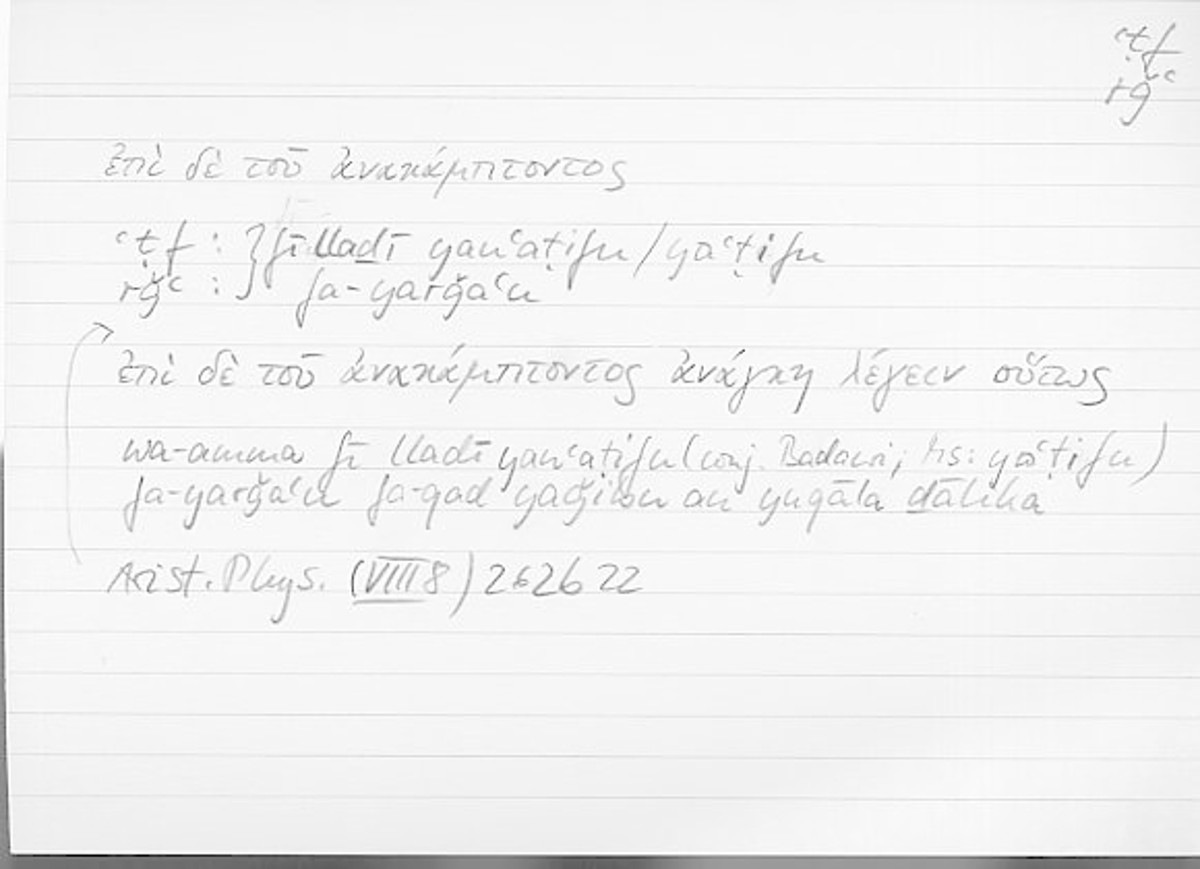 ʿṭf
rǧʿ
ἐπὶ δὲ τοῦ ἀνακάμπτοντος
ʿṭf : } fī lladī yanʿaṭifu / yaʿṭifu
rǧʿ : } fa-yarǧaʿu
ἐπὶ δὲ τοῦ ἀνακάμπτοντος ἀνάγκη λέγειν οὕτως
wa-amma fī lladī yanʿaṭifu (conj. Badawi; hs: yaʿṭifu)
fa-yarǧaʿu fa-qad yaǧibu an yuqāla ḏālika
Arist. Phys. (VIII 8) 262b22